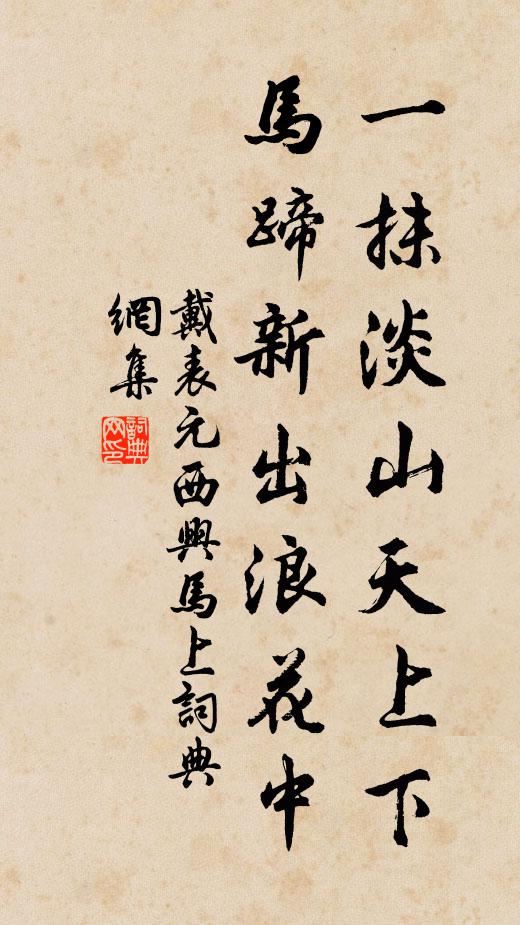 一抹淡山天上下
馬蹄新出浪花中
戴表元西興馬上詞典
網集
詞典
网印